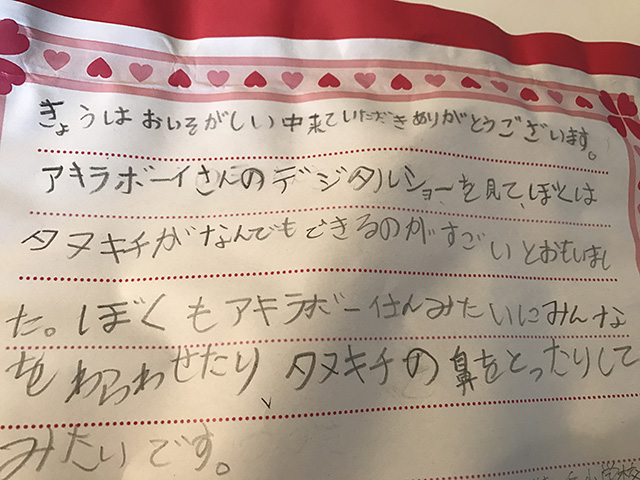 きょうはおいそがしい中来ていただきありがとうございます。
アキラボーイさんのデジタルショーを見て、ぼくは
タヌキチがなんでもできるのがすごいとおもいまし
た。ぼくもアキラボーイさんみたいにみんな
をわらわせたりタヌキチの鼻をとったりして
みたいです。
小学校